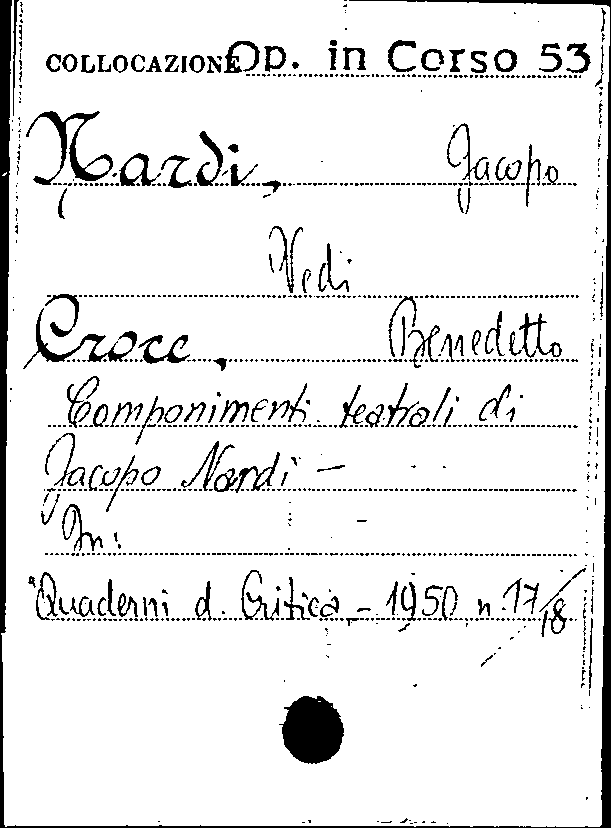 COLLOCAZIONE Op. in Corso 53
Nardi, Jacopo
Vedi
Croce, Benedetto
Componimenti teatrali di
Jacopo Nardi -
In:
"Quaderni d. Critica - 1950 n. 17/18